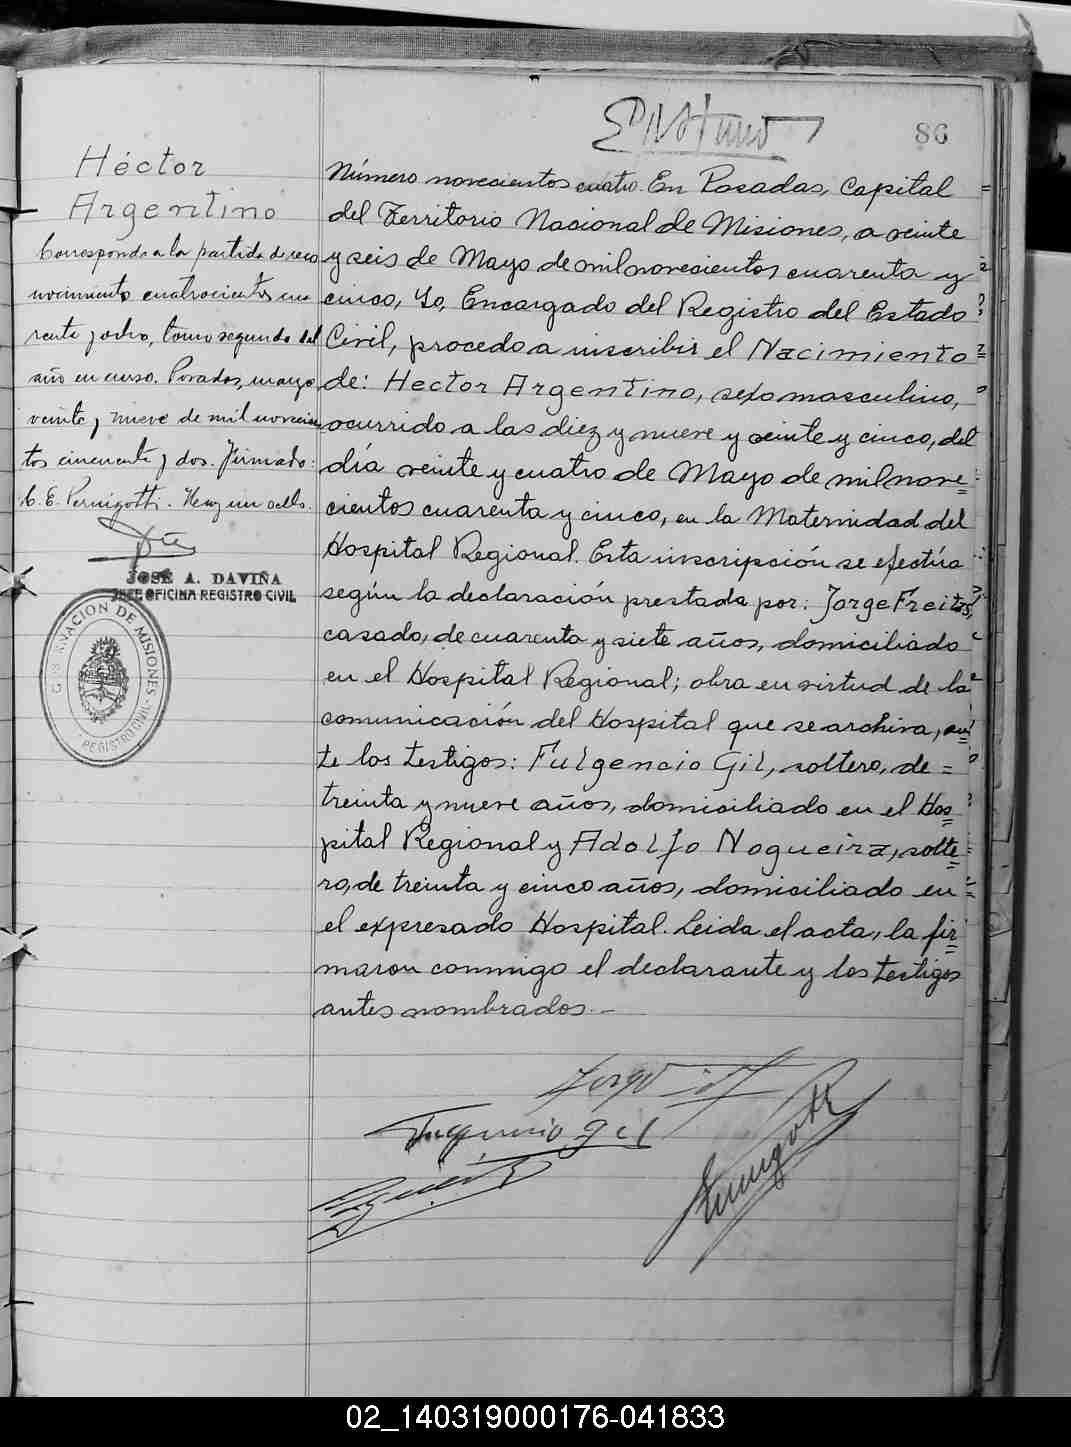 86
Héctor
Argentino
Corresponde a la partida de reco
nocimiento cuatrocientos cua
renta y ocho, tomo segundo del
año en curso. Posadas, mayo
veinte y nueve de mil novecien
tos cincuenta y dos. Firmado:
C. E. Pernigotti. Hay un sello.
JOSÉ A. DAVIÑA
JEFE OFICINA REGISTRO CIVIL
GOBERNACION DE MISIONES
REGISTRO CIVIL
Número novecientos cuatro. En Posadas, Capital
del Territorio Nacional de Misiones, a veinte
y seis de Mayo de mil novecientos cuarenta y
cinco, Yo, Encargado del Registro del Estado
Civil, procedo a inscribir el Nacimiento
de: Hector Argentino, sexo masculino,
ocurrido a las diez y nueve y veinte y cinco, del
día veinte y cuatro de Mayo de mil nove=
cientos cuarenta y cinco, en la Maternidad del
Hospital Regional. Esta inscripción se efectúa
según la declaración prestada por: Jorge Freitas,
casado, de cuarenta y siete años, domiciliado
en el Hospital Regional; obra en virtud de la
comunicación del Hospital que se archiva, an=
te los testigos: Fulgencio Gil, soltero, de=
treinta y nueve años, domiciliado en el Hos=
pital Regional y Adolfo Nogueira, solte=
ro, de treinta y cinco años, domiciliado en
el expresado Hospital. Leida el acta, la fir=
maron conmigo el declarante y los testigos
antes nombrados.—
Fulgencio Gil
02_140319000176-041833